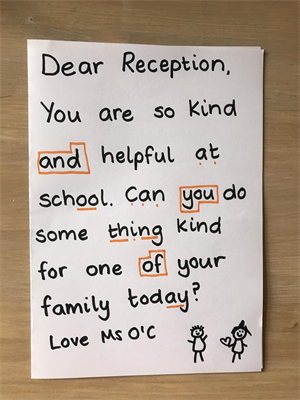 Dear Reception,
You are so kind
and helpful at
school. Can you do
some thing kind
for one of your
family today?
Love Ms O'C